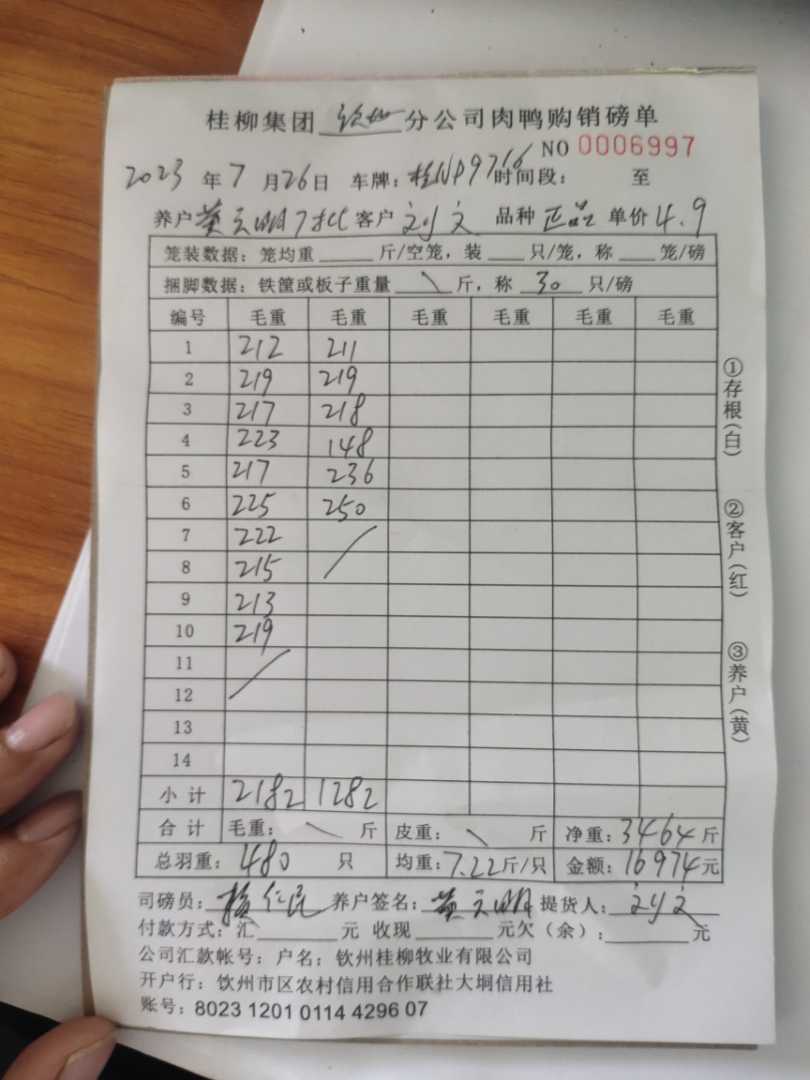 桂柳集团 钦州 分公司肉鸭购销磅单
NO 0006997
2023 年 7 月 26 日 车牌：桂NP9766 时间段： 至
养户 黄立明 客户 刘文 品种 正品 单价 4.9
笼装数据：笼均重 斤/空笼，装 只/笼，称 笼/磅
捆脚数据：铁筐或板子重量 \ 斤，称 30 只/磅
编号 毛重 毛重 毛重 毛重 毛重 毛重
1 212 211
2 219 219
3 217 218
4 223 148
5 217 236
6 225 250
7 222 /
8 215
9 213
10 219
11 /
12
13
14
小计 2182 1282
合计 毛重： \ 斤 皮重： \ 斤 净重：3464 斤
总羽重：480 只 均重：7.22 斤/只 金额：16974 元
司磅员： 养户签名：黄立明 提货人：刘文
付款方式：汇 元 收现 元欠（余）： 元
公司汇款帐号：户名：钦州桂柳牧业有限公司
开户行：钦州市区农村信用合作联社大垌信用社
账号：8023 1201 0114 4296 07
①存根（白）
②客户（红）
③养户（黄）